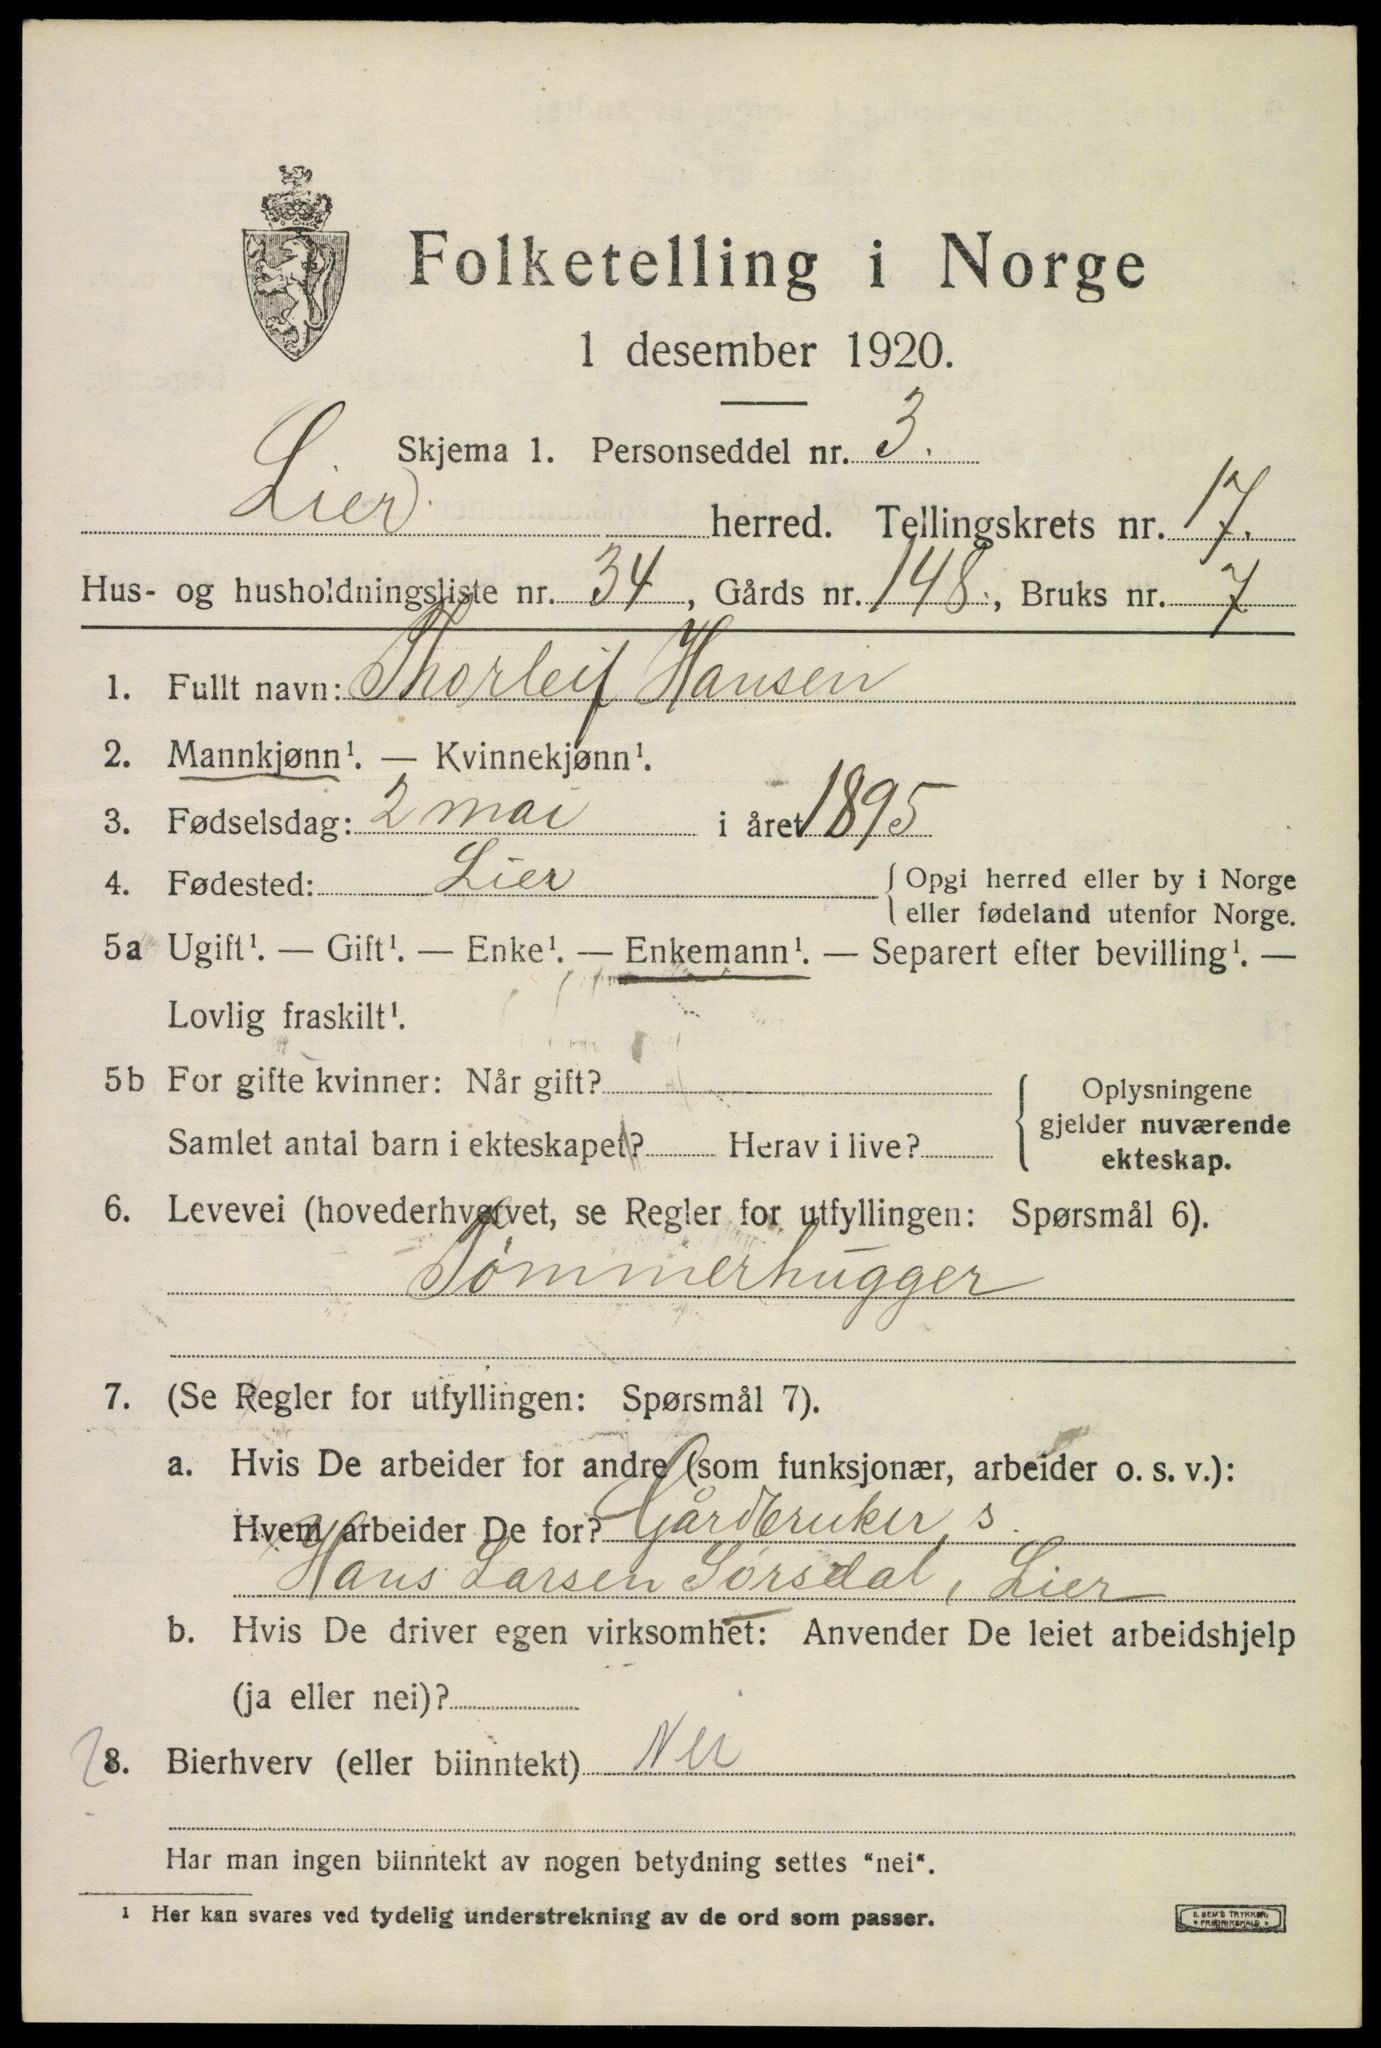 Folketelling i Norge
1 desember 1920.
Skjema 1. Personseddel nr. 3.
Lier herred. Tellingskrets nr. 17.
Hus- og husholdningsliste nr. 34, Gårds nr. 148, Bruks nr. 7
1. Fullt navn: Thorleif Hansen
2. Mannkjønn¹. — Kvinnekjønn¹.
3. Fødselsdag: 2 mai i året 1895
4. Fødested: Lier { Opgi herred eller by i Norge
eller fødeland utenfor Norge.
5a Ugift¹. — Gift¹. — Enke¹. — Enkemann¹. — Separert efter bevilling¹. —
Lovlig fraskilt¹.
5b For gifte kvinner: Når gift?
Samlet antal barn i ekteskapet? Herav i live?
{ Oplysningene
gjelder nuværende
ekteskap.
6. Levevei (hovederhvervet, se Regler for utfyllingen: Spørsmål 6).
Tømmerhugger
7. (Se Regler for utfyllingen: Spørsmål 7).
a. Hvis De arbeider for andre (som funksjonær, arbeider o. s. v.):
Hvem arbeider De for? Gårdbruker, s
Hans Larsen Sørsdal, Lier
b. Hvis De driver egen virksomhet: Anvender De leiet arbeidshjelp
(ja eller nei)?
8. Bierhverv (eller biinntekt) Nei
Har man ingen biinntekt av nogen betydning settes "nei".
¹ Her kan svares ved tydelig understrekning av de ord som passer.
E. SEM'S TRYKKERI
FREDRIKSHALD